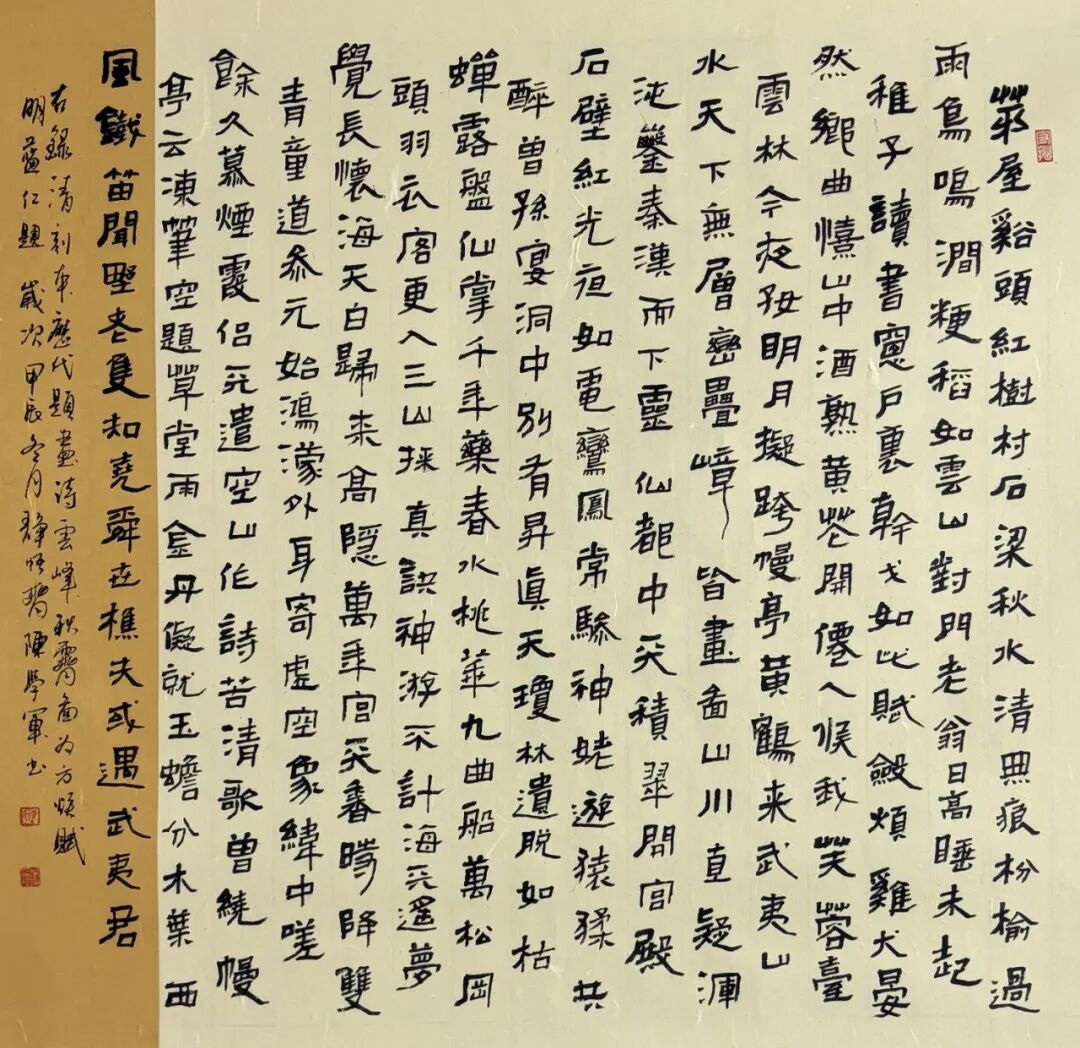 茆屋谿頭紅樹村石梁秋水清無痕枌榆過
雨鳥鳴澗粳稻如雲山對門老翁日高睡未起
稚子讀書窻戶裏幹戈如此賦斂煩雞犬晏
然鄉曲憘山中酒熟黃花開僊人候我芙蓉臺
雲林今夜弄明月擬跨幔亭黃鶴來武夷山
水天下無層巒疊嶂皆畫圖山川直疑渾
沌鑿秦漢而下靈仙都中天積翠開宮殿
石壁紅光夜如電鸞鳳常驂神姥遊猿猱共
醉曾孫宴洞中別有昇真天瓊林遺脫如枯
蟬露盤仙掌千年藥春水桃華九曲船萬松岡
頭羽衣客更入三山採真訣神游不計海天遙夢
覺長懷海天白歸來高隱萬年宮天香曉降雙
青童道參元始鴻濛外身寄虛空象緯中嗟
餘久慕煙霞侶天遣空山作詩苦清歌曾繞幔
亭云凍筆空題草堂雨金丹儗就玉蟾分木葉西
風鐵笛聞野老隻知堯舜世樵夫或遇武夷君
右錄清刻本歷代題畫詩雲峰秋霽圖為方煥賦
明藍仁題 歲次甲辰冬月靜悟齋陳學軍書